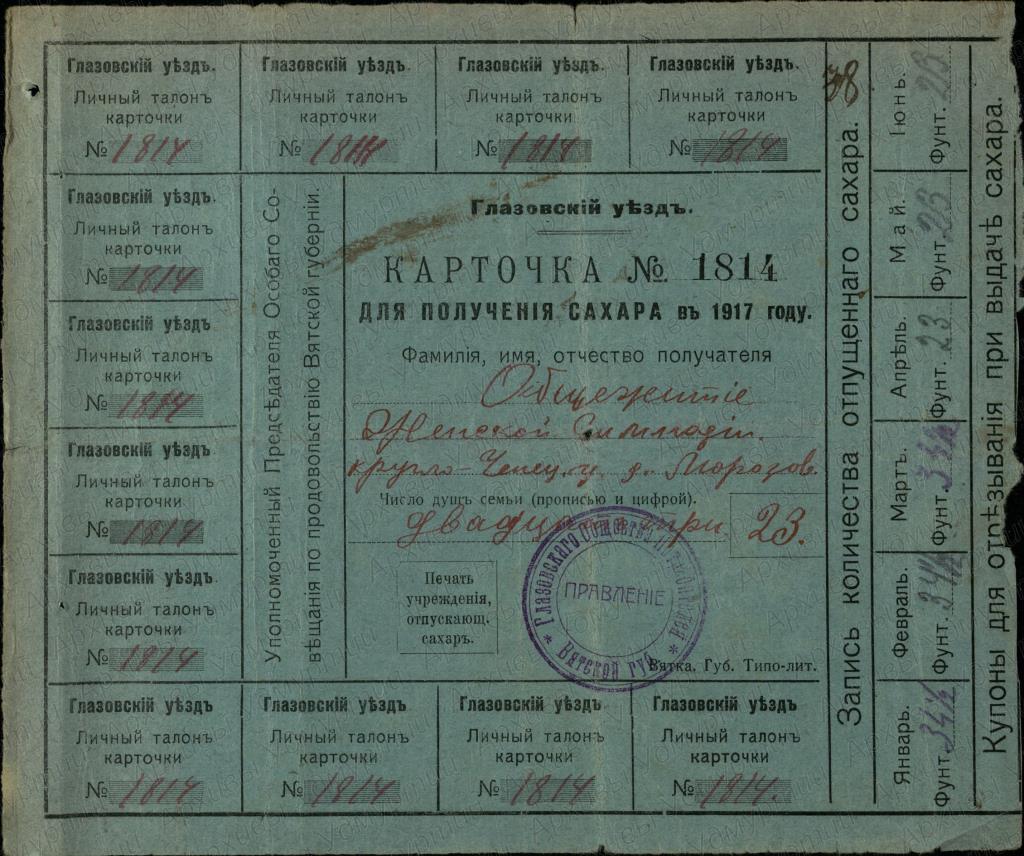 Глазовскій уѣздъ.
Личный талонъ
карточки
№ 1814
Глазовскій уѣздъ.
Личный талонъ
карточки
№ 1814
Глазовскій уѣздъ.
Личный талонъ
карточки
№ 1814
Глазовскій уѣздъ.
Личный талонъ
карточки
№ 1814
Глазовскій уѣздъ.
Личный талонъ
карточки
№ 1814
Глазовскій уѣздъ
Личный талонъ
карточки
№ 1814
Глазовскій уѣздъ
Личный талонъ
карточки
№ 1814
Глазовскій уѣздъ
Личный талонъ
карточки
№ 1814
Уполномоченный Предсѣдателя Особаго Со-
вѣщанія по продовольствію Вятской губерніи.
Глазовскій уѣздъ.
КАРТОЧКА № 1814
ДЛЯ ПОЛУЧЕНІЯ САХАРА въ 1917 году.
Фамилія, имя, отчество получателя
Общежитіе
Женской Гимназіи.
д. Морозов.
Число душъ семьи (прописью и цифрой).
двадцать три 23.
Печать
учрежденія,
отпускающ.
сахаръ.
Глазовскаго Общества
ПРАВЛЕНІЕ
Вятской губ.
Вятка, Губ. Типо-лит.
Глазовскій уѣздъ
Личный талонъ
карточки
№ 1814
Глазовскій уѣздъ
Личный талонъ
карточки
№ 1814
Глазовскій уѣздъ
Личный талонъ
карточки
№ 1814
Глазовскій уѣздъ
Личный талонъ
карточки
№ 1814.
38
Запись количества отпущеннаго сахара.
Январь.
Фунт. 34½
Февраль.
Фунт. 34½
Мартъ.
Фунт. 34½
Апрѣль.
Фунт. 23
Май.
Фунт. 23
Іюнь.
Фунт. 23
Купоны для отрѣзыванія при выдачѣ сахара.